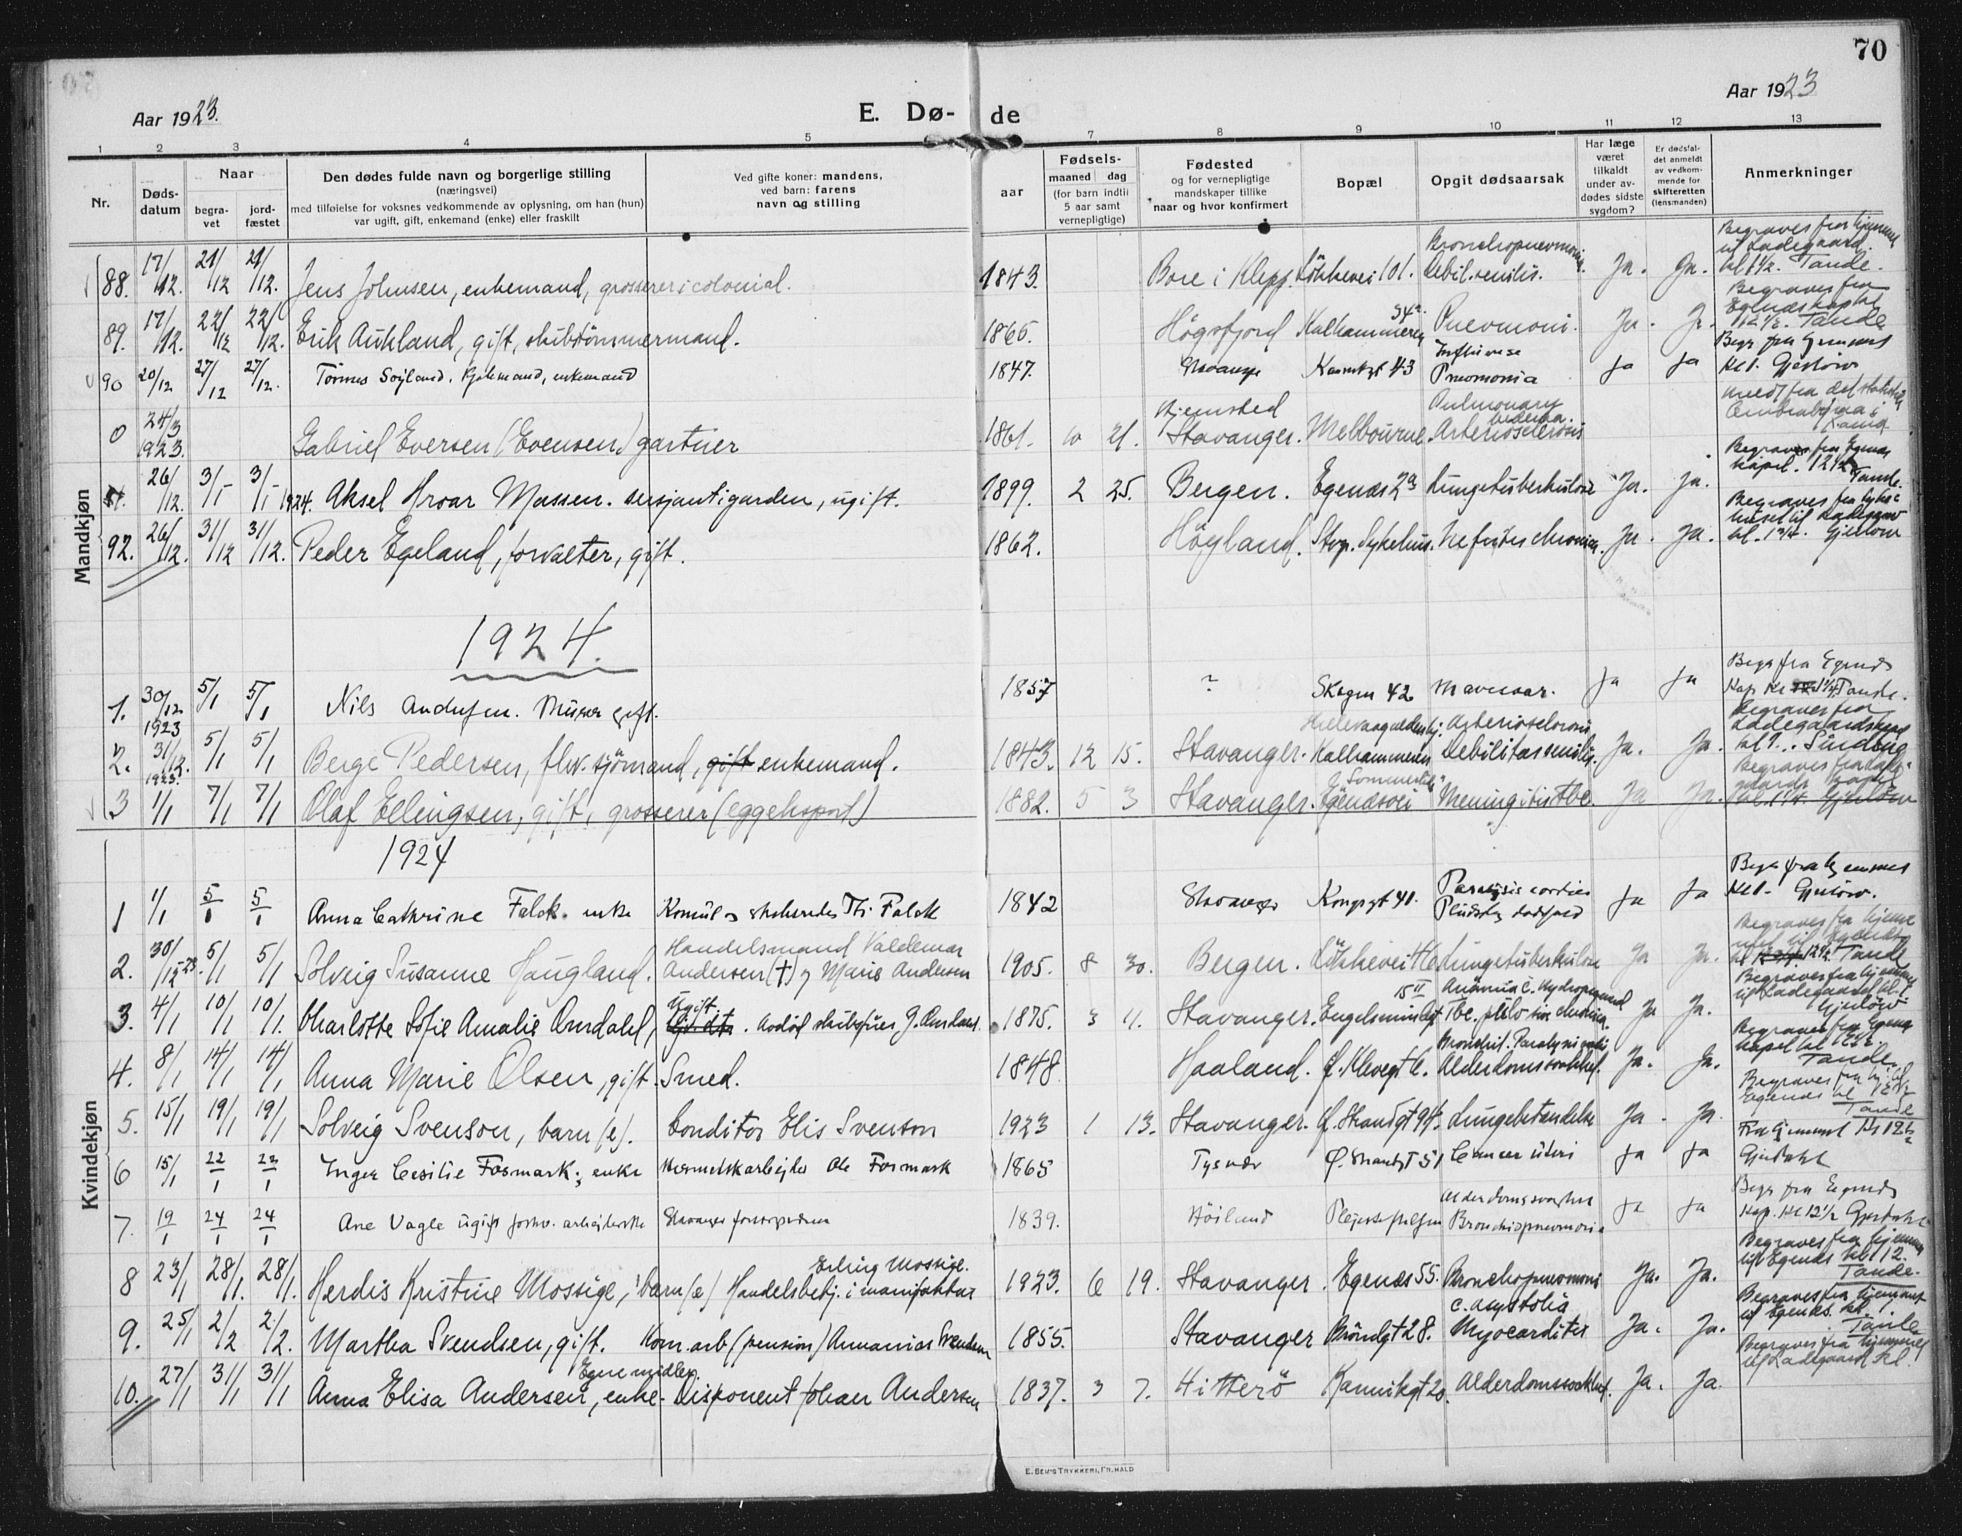 70
Aar 1923.
E. Dø- de
Aar 1923
1 2 3 4 5 7 8 9 10 11 12 13
Nr.
Døds-
datum
Naar
begra-
vet
jord-
fæstet
Den dødes fulde navn og borgerlige stilling
(næringsvei)
med tilføielse for voksnes vedkommende av oplysning, om han (hun)
var ugift, gift, enkemand (enke) eller fraskilt
Ved gifte koner: mandens,
ved barn: farens
navn og stilling
aar
Fødsels-
maaned dag
(for barn indtil
5 aar samt
vernepligtige)
Fødested
og for vernepligtige
mandskaper tillike
naar og hvor konfirmert
Bopæl
Opgit dødsaarsak
Har læge
været
tilkaldt
under av-
dødes sidste
sygdom?
Er dødsfal-
det anmeldt
av vedkom-
mende for
skifteretten
(lensmanden)
Anmerkninger
Mandkjøn
88. 17/12. 21/12 21/12. Jens Johnsen, enkemand, grosserer i colonial. 1843. Bore i Klepp. Løkkevei 101. Bronchopneumoni. Debil. senilis. Ja. Ja. Begraves fra hjemmet til Ladegaard. kl 1 1/2. Tande.
89. 17/12. 22/12 22/12. Erik Aukland, gift, skibtømmermand. 1866. Høgsfjord Kalhammeren 34 Pneumoni. Ja. Ja. Begraves fra Egenæs kapel 12 1/2. Tande
90 20/12 27/12 27/12. Tønnes Soyland. enkemand 1847. Stavanger 43 Influense Pneomonia Ja Ja Begr fra hjemmet Kl 1. Gjerløw
0 24/3 1923. Gabriel Eversen (Evensen) gartner 1861. 10 21. Hjemsted Stavanger. Melbourne. Pulmonary oedema. Arteriosclerosis
26/12. 3/1 3/1 1924. Aksel Hroar Massen. sersjant i garden, ugift. 1899. 2 25. Bergen. Egenæs 23 Lungetuberkulose Ja. Ja. Begraves fra Egenæs kapel. 12 1/2 Tande.
92. 26/12. 31/12 31/12. Peder Egeland, forvalter, gift. 1862. Høyland. Stvgr. Sykehus. Nefrites chronica. Ja. Ja. Begraves fra Syke- huset til Ladegaard kl. 1 3/4. Gjerløw
1924.
1. 30/12 1923 5/1 5/1 Nils Andersen. Murer gift. 1857 ? Skagen 42 Mavesaar. Ja Ja Begr fra Egenæs Kap. Kl 1 1/4 Tande.
2. 31/12. 1923. 5/1 5/1 Berge Pedersen, fhv. sjømand, gift enkemand. 1843. 12 15. Stavanger. Kalhammeren Arteriosclerosis, Debilitas senilis. Ja. Ja. Begraves fra Ladegaardskapel kl 1. Sinding
3 1/1 7/1 7/1 Olaf Ellingsen, gift, grosserer (eggeksport) 1882. 5 3 Stavanger. Egenæsvei Meningitis tbc. Ja Ja. Begraves fra Lade- gaards kapel kl 1 1/4. Gjerløw
Kvindekjøn
1924
1 1/1 5/1 5/1 Anna Cathrine Falck. enke Konsul og skibsreder Th. Falck 1842 Stavanger Kongsgt 41. Paralysis cordies Pludselig dødsfald Ja Ja Begr fra hjemmet Kl 1. Gjerløw.
2. 30/12 23. 5/1 5/1 Solveig Susanne Haugland. Handelsmand Valdemar Andersen (†) og Marie Andersen 1905. 8 30. Bergen. Løkkevei Lungetuberkulose Ja Ja. Begraves fra hjemmet til Egenæs kl 12 1/2. Tande
3. 4/1 10/1 10/1. Charlotte Sofie Amalie Omdahl, Ugift. Avdød skibsfører G. Omdahl. 1875. 3 11. Stavanger. Engelsminnegt 15 II Anæmia c. hydrops Tbc. pulm. chronica. Ja Ja. Begraves fra hjemmet til Ladegaard kl. 1 Gjerløw
4. 8/1 14/1 14/1 Anna Marie Olsen, gift. Smed. 1848 Haaland. Ø. Klevegt 6. Bronchit. Paralysis cordis Alderdomssvakhet. Ja. Ja. Begraves fra Egenæs kapel kl 12 1/2 Tande.
5. 15/1 19/1 19/1 Solveig Svenson, barn (e). Conditor Elis Svenson 1923 1 13. Stavanger. Ø. Strandgt 94. Lungebetændelse Ja. Ja. Begraves fra hj. til Egenæs kl 12 1/2 Tande
6 15/1 22/1 22/1 Inger Cesilie Fosmark; enke Hermetikarbejder Ole Fosmark 1865 Tysvær Ø. Strandgt 51 Cancer uteri Ja Ja Fra hjemmet Kl 12 1/2 Gjerdahl
7. 19/1 24/1 24/1 Ane Vagle ugift forhv. arbejderske Stavanger forsorgsvæsen 1839. Høiland Alderdomssvaghet Bronchiopneumonia Ja Ja Begr fra Egenæs Kap. Kl 12 1/2 Gjerdahl
8 23/1 28/1. 28/1. Herdis Kristine Mossige, barn (e) Handelsbetj. i manifaktur Erling Mossige. 1923. 6 19. Stavanger. Egenæs 55. Bronchopneumoni c. asystolia Ja. Ja. Begraves fra hjemmet til Egenæs kl 12. Tande.
9. 25/1 2/2 2/2. Martha Svendsen, gift. Kom. arb (pension) Annanias Svendsen 1855. Stavanger Brøndgt 28. Myocarditis Ja. Ja. Begraves fra hjemmet til Egenæs. kl 1 Tande
10. 27/1 31/1 31/1 Anna Elisa Andersen, enke. Egne midler. Disponent Johan Andersen 1837. 3 7. Hitterø Kannikgt 20. Alderdomssvakhet. Ja. Ja. Begraves fra hjemmet til Ladegaard kl
E. BEH'S TRYKKERI, FR. HALD